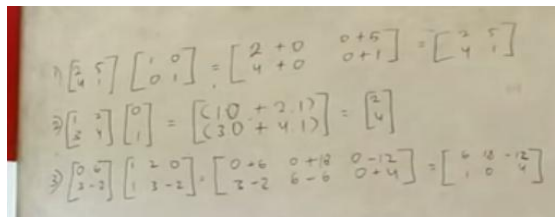 1) [2 5 4 1] [1 0 0 1] = [2 + 0 0 + 5 4 + 0 0 + 1] = [2 5 4 1]
2) [1 2 3 4] [0 1] = [(1.0 + 2.1) (3.0 + 4.1)] = [2 4]
3) [0 6 3 -2] [1 2 0 1 3 -2] = [0+6 0+18 0-12 3-2 6-6 0+4] = [6 18 -12 1 0 4]